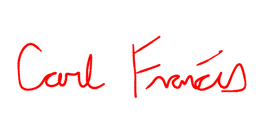 Carl Francis